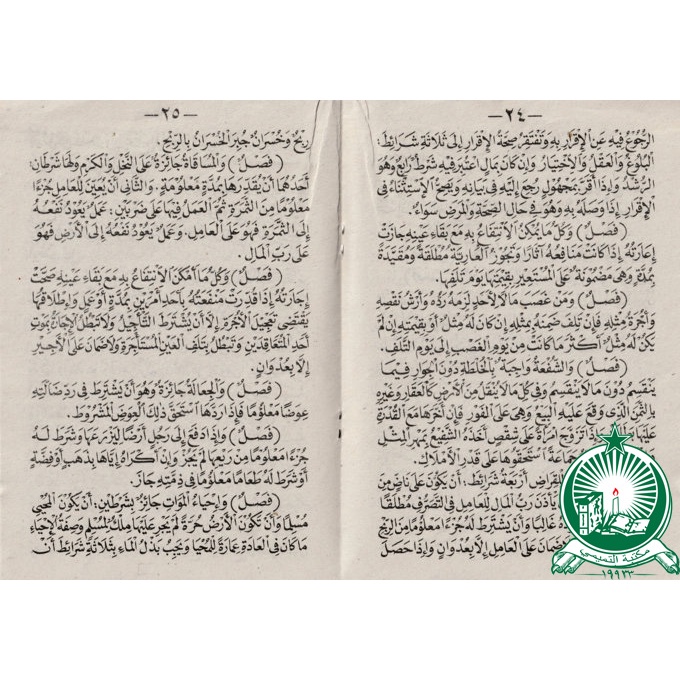 — ٢٤ —
الرُّجُوعُ فِيهِ عَنِ الْإِقْرَارِ بِهِ وَتَفْتَقِرُ صِحَّةُ الْإِقْرَارِ إِلَى ثَلَاثَةِ شَرَائِطَ:
الْبُلُوغُ وَالْعَقْلُ وَالْاِخْتِيَارُ وَإِنْ كَانَ بِمَالٍ اعْتُبِرَ فِيهِ شَرْطٌ رَابِعٌ وَهُوَ
الرُّشْدُ وَإِذَا أَقَرَّ بِمَجْهُولٍ رُجِعَ إِلَيْهِ فِي بَيَانِهِ وَيَصِحُّ الْاِسْتِثْنَاءُ فِي
الْإِقْرَارِ إِذَا وَصَلَهُ بِهِ وَهُوَ فِي حَالِ الصِّحَّةِ وَالْمَرَضِ سَوَاءٌ.
(فَصْلٌ) وَكُلُّ مَا يُمْكِنُ الْاِنْتِفَاعُ بِهِ مَعَ بَقَاءِ عَيْنِهِ جَازَتْ
إِعَارَتُهُ إِذَا كَانَتْ مَنَافِعُهُ آثَارًا وَتَجُوزُ الْعَارِيَةُ مُطْلَقَةً وَمُقَيَّدَةً
بِمُدَّةٍ وَهِيَ مَضْمُونَةٌ عَلَى الْمُسْتَعِيرِ بِقِيمَتِهَا يَوْمَ تَلَفِهَا.
(فَصْلٌ) وَمَنْ غَصَبَ مَالًا لِأَحَدٍ لَزِمَهُ رَدُّهُ وَأَرْشُ نَقْصِهِ
وَأُجْرَةُ مِثْلِهِ فَإِنْ تَلِفَ ضَمِنَهُ بِمِثْلِهِ إِنْ كَانَ لَهُ مِثْلٌ أَوْ بِقِيمَتِهِ إِنْ لَمْ
يَكُنْ لَهُ مِثْلٌ أَكْثَرَ مَا كَانَتْ مِنْ يَوْمِ الْغَصْبِ إِلَى يَوْمِ التَّلَفِ.
(فَصْلٌ) وَالشُّفْعَةُ وَاجِبَةٌ بِالْخُلْطَةِ دُونَ الْجِوَارِ فِيمَا
يَنْقَسِمُ دُونَ مَا لَا يَنْقَسِمُ وَفِي كُلِّ مَا لَا يُنْقَلُ مِنَ الْأَرْضِ كَالْعَقَارِ وَغَيْرِهِ
بِالثَّمَنِ الَّذِي وَقَعَ عَلَيْهِ الْبَيْعُ وَهِيَ عَلَى الْفَوْرِ فَإِنْ أَخَّرَهَا مَعَ الْقُدْرَةِ
عَلَيْهَا تَزَوَّجَ امْرَأَةً عَلَى شِقْصٍ أَخَذَهُ الشَّفِيعُ بِمَهْرِ الْمِثْلِ
جَمَاعَةً اسْتَحَقُّوهَا عَلَى قَدْرِ الْأَمْلَاكِ.
الْقِرَاضِ أَرْبَعَةُ شَرَائِطَ: أَنْ يَكُونَ عَلَى نَاضٍّ مِنَ
يَأْذَنَ رَبُّ الْمَالِ لِلْعَامِلِ فِي التَّصَرُّفِ مُطْلَقًا
غَالِبًا وَأَنْ يَشْتَرِطَ لَهُ جُزْءًا مَعْلُومًا مِنَ الرِّبْحِ
ضَمَانَ عَلَى الْعَامِلِ إِلَّا بِعُدْوَانٍ وَإِذَا حَصَلَ
— ٢٥ —
رِبْحٌ وَخُسْرَانٌ جُبِرَ الْخُسْرَانُ بِالرِّبْحِ.
(فَصْلٌ) وَالْمُسَاقَاةُ جَائِزَةٌ عَلَى النَّخْلِ وَالْكَرْمِ وَلَهَا شَرْطَانِ:
أَحَدُهُمَا أَنْ يُقَدِّرَهَا بِمُدَّةٍ مَعْلُومَةٍ. وَالثَّانِي أَنْ يُعَيِّنَ لِلْعَامِلِ جُزْءًا
مَعْلُومًا مِنَ الثَّمَرَةِ ثُمَّ الْعَمَلُ فِيهَا عَلَى ضَرْبَيْنِ: عَمَلٌ يَعُودُ نَفْعُهُ
إِلَى الثَّمَرَةِ فَهُوَ عَلَى الْعَامِلِ. وَعَمَلٌ يَعُودُ نَفْعُهُ إِلَى الْأَرْضِ فَهُوَ
عَلَى رَبِّ الْمَالِ.
(فَصْلٌ) وَكُلُّ مَا أَمْكَنَ الْاِنْتِفَاعُ بِهِ مَعَ بَقَاءِ عَيْنِهِ صَحَّتْ
إِجَارَتُهُ إِذَا قُدِّرَتْ مَنْفَعَتُهُ بِأَحَدِ أَمْرَيْنِ بِمُدَّةٍ أَوْ عَمَلٍ وَإِطْلَاقُهَا
يَقْتَضِي تَعْجِيلَ الْأُجْرَةِ إِلَّا أَنْ يُشْتَرَطَ التَّأْجِيلُ وَلَا تَبْطُلُ الْإِجَارَةُ بِمَوْتِ
أَحَدِ الْمُتَعَاقِدَيْنِ وَتَبْطُلُ بِتَلَفِ الْعَيْنِ الْمُسْتَأْجَرَةِ وَلَا ضَمَانَ عَلَى الْأَجِيرِ
إِلَّا بِعُدْوَانٍ.
(فَصْلٌ) وَالْجِعَالَةُ جَائِزَةٌ وَهُوَ أَنْ يَشْتَرِطَ فِي رَدِّ ضَالَّتِهِ
عِوَضًا مَعْلُومًا فَإِذَا رَدَّهَا اسْتَحَقَّ ذٰلِكَ الْعِوَضَ الْمَشْرُوطَ.
(فَصْلٌ) وَإِذَا دَفَعَ إِلَى رَجُلٍ أَرْضًا لِيَزْرَعَهَا وَشَرَطَ لَهُ
جُزْءًا مَعْلُومًا مِنْ رَيْعِهَا لَمْ يَجُزْ وَإِنْ أَكْرَاهُ إِيَّاهَا بِذَهَبٍ أَوْ فِضَّةٍ
أَوْ شَرَطَ لَهُ طَعَامًا مَعْلُومًا فِي ذِمَّتِهِ جَازَ.
(فَصْلٌ) وَإِحْيَاءُ الْمَوَاتِ جَائِزٌ بِشَرْطَيْنِ: أَنْ يَكُونَ الْمُحْيِي
مُسْلِمًا وَأَنْ تَكُونَ الْأَرْضُ حُرَّةً لَمْ يَجْرِ عَلَيْهَا مِلْكٌ لِمُسْلِمٍ وَصِفَةُ الْإِحْيَاءِ
مَا كَانَ فِي الْعَادَةِ عِمَارَةً لِلْمُحْيَا وَيَجِبُ بَذْلُ الْمَاءِ بِثَلَاثَةِ شَرَائِطَ أَنْ
مكتبة